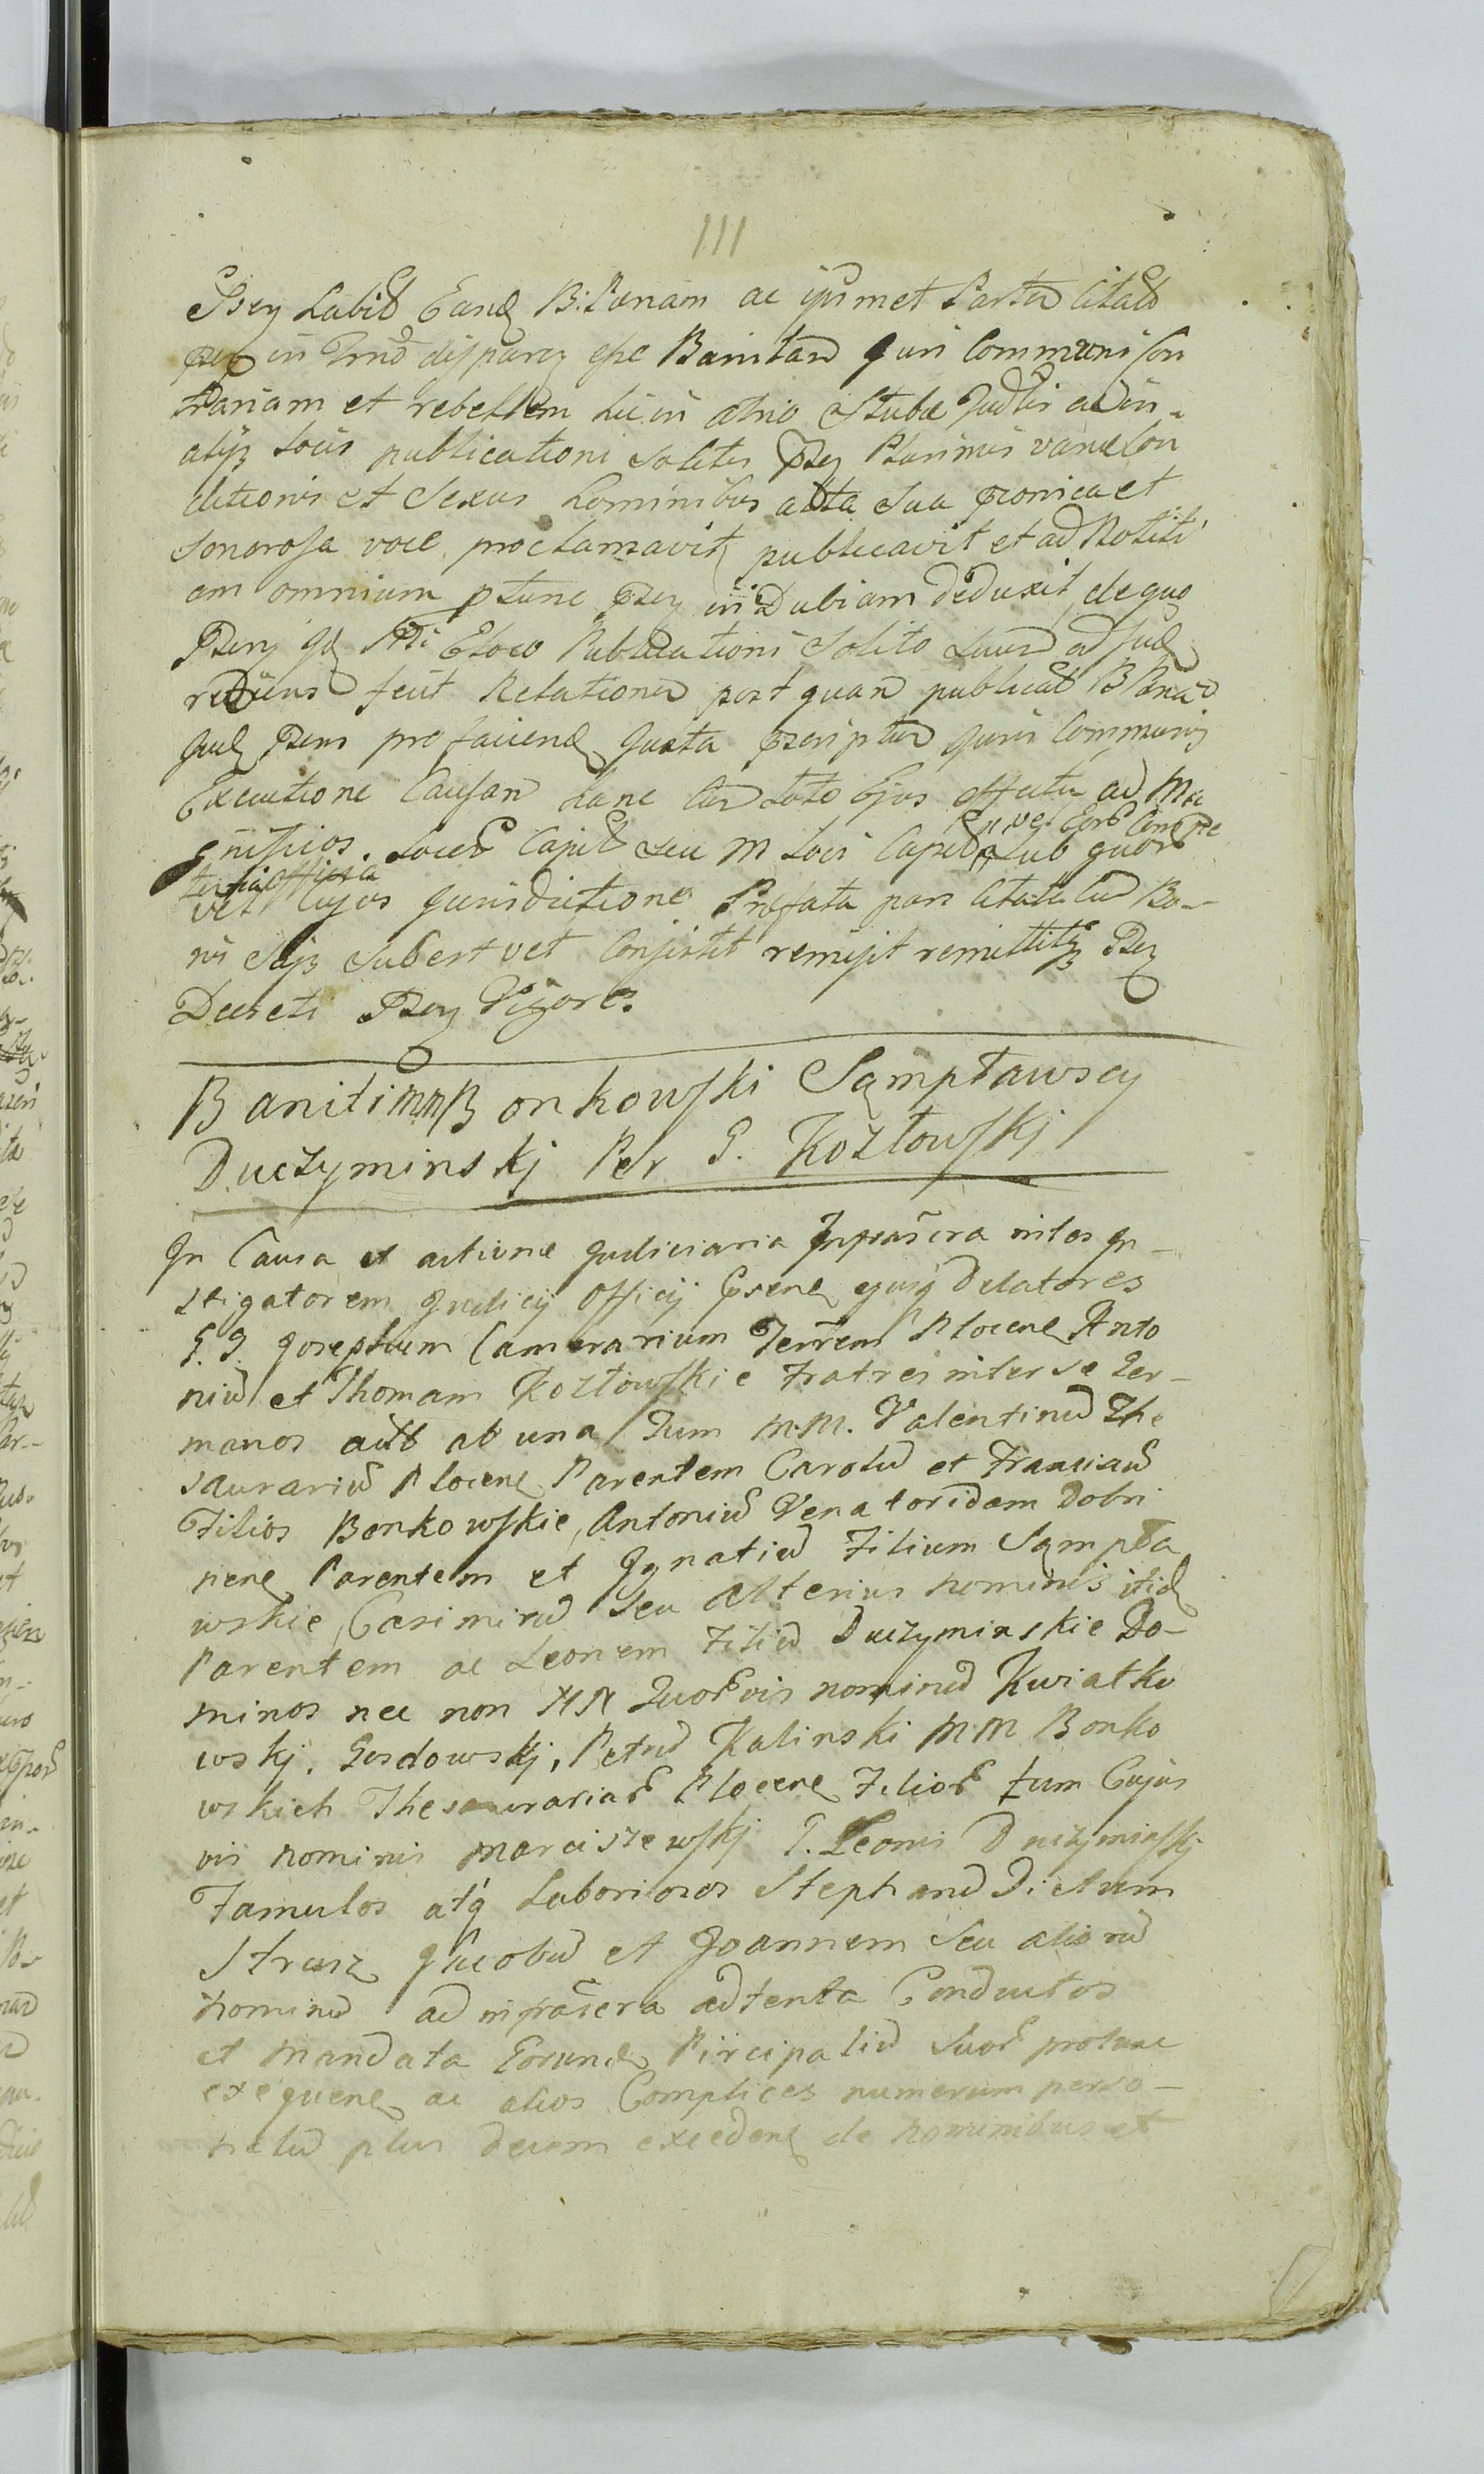 111
Psen habit Eand B: Pœnam ac ipsmet Partem Citatã
psen in Trnõ disparen esse Banitam Juri Communi Con
trariam et rebellem hic in atrio Stubæ Judlis ac in
aliis Locis publicationi solitis psen Plurimis variæ Con
ditionis et Sexus hominibus alta sua præonica et
sonorosa voce proclamavit publicavit et ad Notiti
am omnium ptunc psen indubiam deduxit, de quo
Psen E loco Publicationi Solito Suum ad Jud
rediens fecit Relationem post quam publicat B Pœnã
Jud psens pro faciend Juxta præscriptum Juris Communis
Executione Causam hanc cum toto Ejus effectu ad Ma
gnificos. Loco Capit seu M Loci Capit sub quor
vel cujus Jurisdictione Præfata pars Citata cum Bo-
nis Suis Subest vel Consistit remisit remittitq Psen
Decreti Psen Vigore.
Baniti MM Bonkowski Sąmpławscy
Duczyminskj Per G. Kozłowskj
In Causa et actione Judiciaria Infrascra inter In-
stigatorem Judicij Officij Psene ejusq Delatores
G. G. Josephum Camerarium Terrem Plocene Anto
nium et Thomam Kozłowskie Fratres inter se Ger-
manos act ab una Tum M.M. Valentinum The
saurarium Plocene Parentem Carolum et Franciscum
Filios Bonkowskie, Antonium Venatoridem Dobri
nene Parentem et Ignatium Filium Sąmpła
wskie, Casimirum Seu alterius nominis itid
Parentem ac Leonem Filium Duczyminskie Do-
minos nec non NN Quorvis nominum Kwiatko
wskj, Gosdowskj, Petrum Kalinski MM Bonko
wskich Thesaurariar Plocene Filior tum Cujus
vis nominis Marciszewskj G. Leonis Duczyminskj
Famulos atq Laboriosos Stephanum Dictum
Strusz Jacobum et Joannem Seu aliorum
nominum ad infrascra adtenta Conductos
et Mandata Eorund Pircipalium Suor
exequene ac alios Complices numerum perso-
nalium plus decem excedene de nominibus et